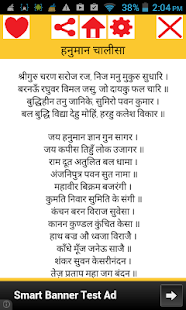 2:04 PM
हनुमान चालीसा
श्रीगुरु चरण सरोज रज, निज मनु मुकुरु सुधारि ।
बरनऊँ रघुवर विमल जसु, जो दायकु फल चारि ॥
बुद्धिहीन तनु जानिके, सुमिरो पवन कुमार ।
बल बुद्धि विद्या देहु मोहिं, हरहु कलेश विकार ॥
जय हनुमान ज्ञान गुन सागर ।
जय कपीस तिहुँ लोक उजागर ।
राम दूत अतुलित बल धामा ।
अंजनि पुत्र पवन सुत नामा ॥
महावीर बिक्रम बजरंगी ।
कुमति निवार सुमिति के संगी ।
कंचन बरन विराज सुवेसा ।
कानन कुण्डल कुंचित केसा ॥
हाथ बज्र औ ध्वजा विराजै ।
काँधे मूँज जनेऊ साजै ॥
शंकर सुवन केसरीनंदन ।
तेज़ प्रताप महा जग बंदन ॥
Smart Banner Test Ad